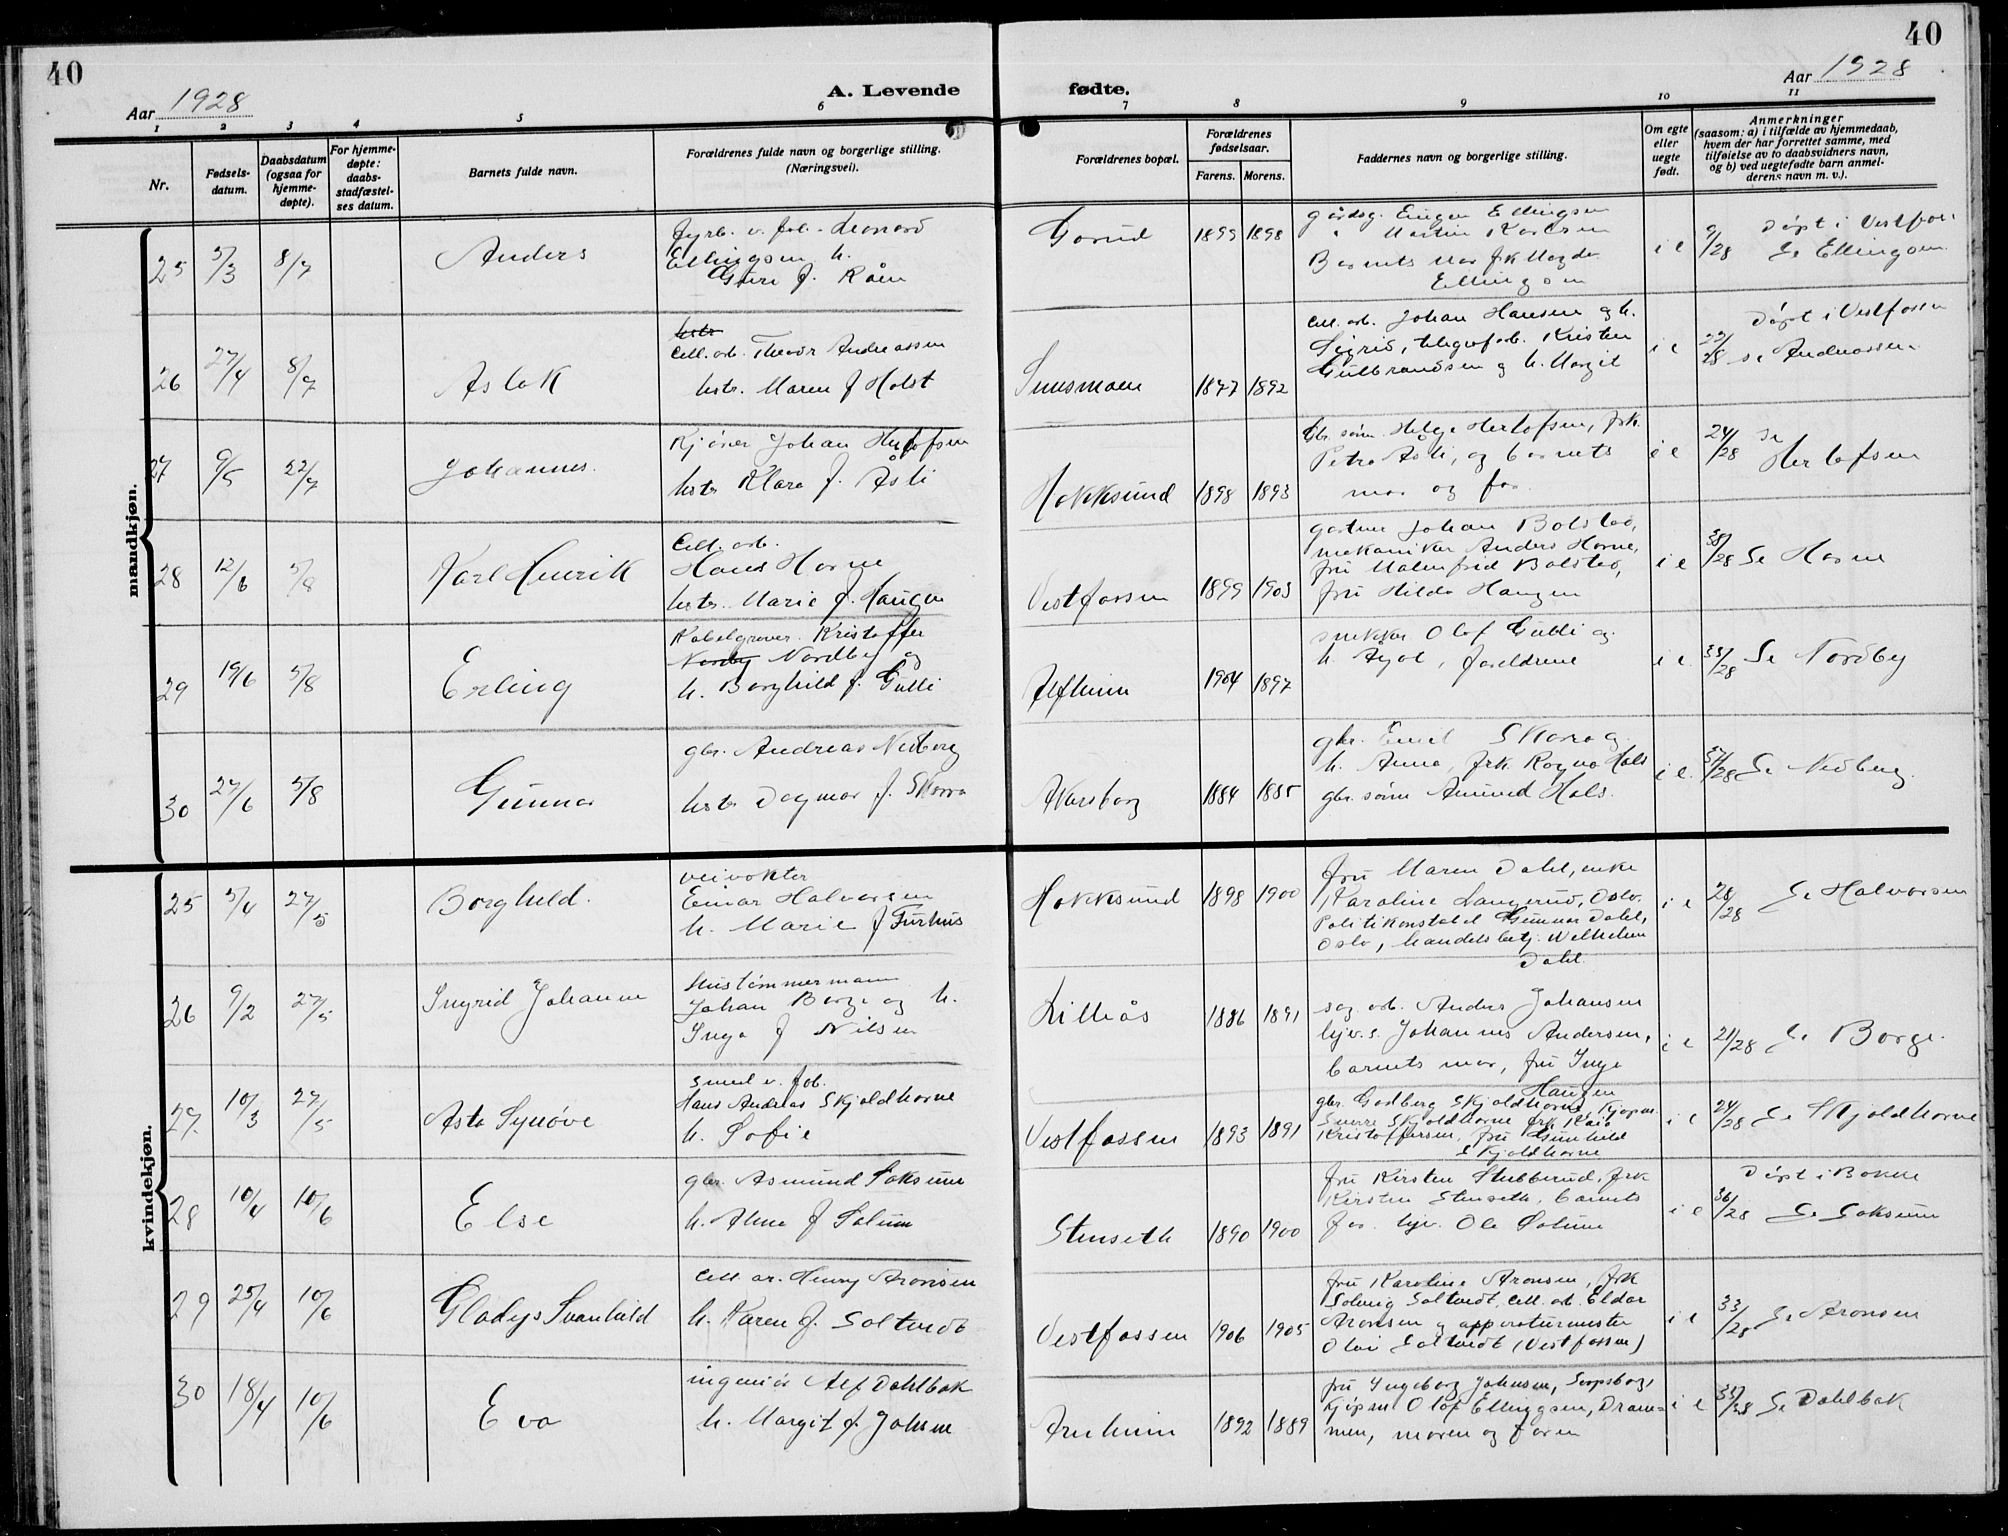 40
40
Aar 1928
A. Levende
fødte.
Aar 1928
1 2 3 4 5 6 7 8 9 10 11
Nr.
Fødsels-
datum.
Daabsdatum
(ogsaa for
hjemme-
døpte).
For hjemme-
døpte:
daabs-
stadfæstel-
ses datum.
Barnets fulde navn.
Forældrenes fulde navn og borgerlige stilling.
(Næringsvei).
Forældrenes bopæl.
Forældrenes
fødselsaar.
Farens. Morens.
Faddernes navn og borgerlige stilling.
Om egte
eller
uegte
født.
Anmerkninger
(saasom: a) i tilfælde av hjemmedaab,
hvem der har forrettet samme, med
tilføielse av to daabsvidners navn,
og b) ved uegtefødte barn anmel-
derens navn m. v.).
mandkjøn.
25 5/3 8/7 Anders
Fyrb. v. fab. Leonard
Ellingsen h.
Guri f. Råen
Gorud 1899 1898
gårdsg. Eingen Ellingsen
" Martin Karlsen
Barnets mor frk Magda
Ellingsen
i e 9/28 Døpt i Vestfossen
Se Ellingsen
26 27/4 8/7 Aslak
Cell. arb. Theodr Andreassen
hstr. Maren f Holst
1877 1892
Cell. arb. Johan Hansen og h.
Sigrid, telegrafarb. Kristen
Gulbrandsen og h. Margit
i e 23/28 Døpt i Vestfossen
se Andreassen
27 9/5 22/7 Johannes.
Kjører Johan Herlofsen
hstr Klara f. Åsli
Hokksund 1898 1893
Gbr. sønn Helge Herlofsen, frk.
Petra Åsli, og barnets
mor og far.
i e 24/28 Se
Herlofsen
28 12/6 5/8 Karl Henrik
Cell. arb.
Hans Horne
hstr. Marie f. Haugen
Vestfossen 1899 1903
gartner Johan Bolstad,
mekaniker Anders Horne,
fru Malmfrid Bolstad,
fru Hilda Haugen
i e 38/28 Se Horne
29 19/6 5/8 Erling
Kabelgraver Kristoffer
Nordby og
h. Borghild f. Gulli
Alfheim 1904 1897
snekker Olaf Gulli og
h. Ågot, foreldrene
i e 35/28 Se Nordby
30 27/6 5/8 Gunnar
gbr. Andreas Nedberg
hstr Dagmar f. Skorra
1884 1885
gbr. Emil Skorra og
h. Anna, frk. Ragna Hals
gbr. sønn Amund Hals.
i e. 37/28 Se Nedberg.
kvindekjøn.
25 5/4 27/5 Borghild.
veivokter
Einar Halvorsen
h. Marie f Furhus
Hokksund 1898 1900
fru Maren Dahl, enke
Karoline Langerud, Oslo.
Politikonstabel Gunnar Dahl,
Oslo, handelsbetj. Wilhelm
Dahl.
i e 28/28 Se Halvorsen
26 9/2 27/5 Ingrid Johanne
Hustømmermann
Johan Borge og h.
Inga f Nilsen
Lilleås 1886 1891
sag. arb. Anders Johansen
hjv. s. Johannes Andersen,
barnets mor, fru Inga
Haugen
i e 21/28 Se Borge.
27. 10/3 27/5 Asta Synøve
smed v. fab.
Hans Andreas Skjoldhorne
h. Sofie
Vestfossen 1893 1891
gbr. Godberg Skjoldhorne, Kjøpm.
Sverre Skjoldhorne frk Kaia
Kristoffersen, fru Gunhild
Skjoldhorne
i e 24/28 Se Skjoldhorne
28 10/4 10/6 Else
gbr. Asmund Saksum
h. Alma f Solum
Stenseth 1890 1900
fru Kirsten Stubberud, frk
Kirsten Stenseth, barnets
far. hjv. Ole Solum
i e 36/28 Døpt i Bakke
Se Saksum
29 25/4 10/6 Gladys Svanhild
Cell ar. Henry Aronsen
h. Karen f. Soltvedt
Vestfossen 1906 1905
fru Karoline Aronsen, frk
Solveig Soltvedt, cell. arb. Eldar
Aronsen og apparaturmester
Olai Soltvedt (Vestfossen)
i e 33/28 Se Aronsen
30 18/4 10/6 Eva
ingeniør Alf Dahlbak
h. Margit f. Johnsen
1892 1889
fru Ingeborg Johnsen, Sarpsborg,
Kjøpm Olaf Ellingsen, Dram-
men, moren og faren
i e 35/28 Se Dahlbak